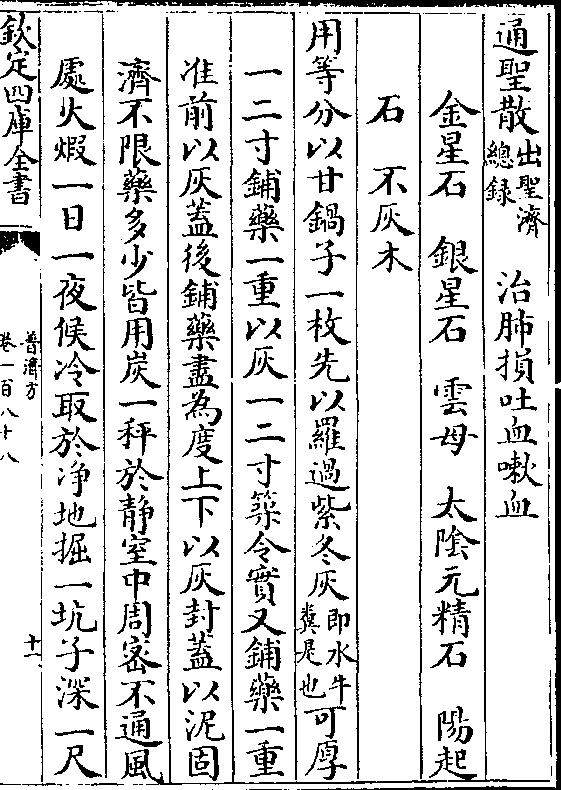 通聖散出聖濟總録 治肺損吐血嗽血
金星石 銀星石 雲母 太隂元精石 陽起
石 不灰木
用等分以甘鍋子一枚先以羅過紫冬灰即水牛糞是也可厚
一二寸鋪藥一重以灰一二寸築令實又鋪藥一重
准前以灰蓋後鋪藥盡為度上下以灰封蓋以泥固
濟不限藥多少皆用炭一秤於静室中周宻不通風
處火煅一日一夜候冷取於净地掘一坑子深一尺
欽定四庫全書
普濟方
卷一百八十八
十一